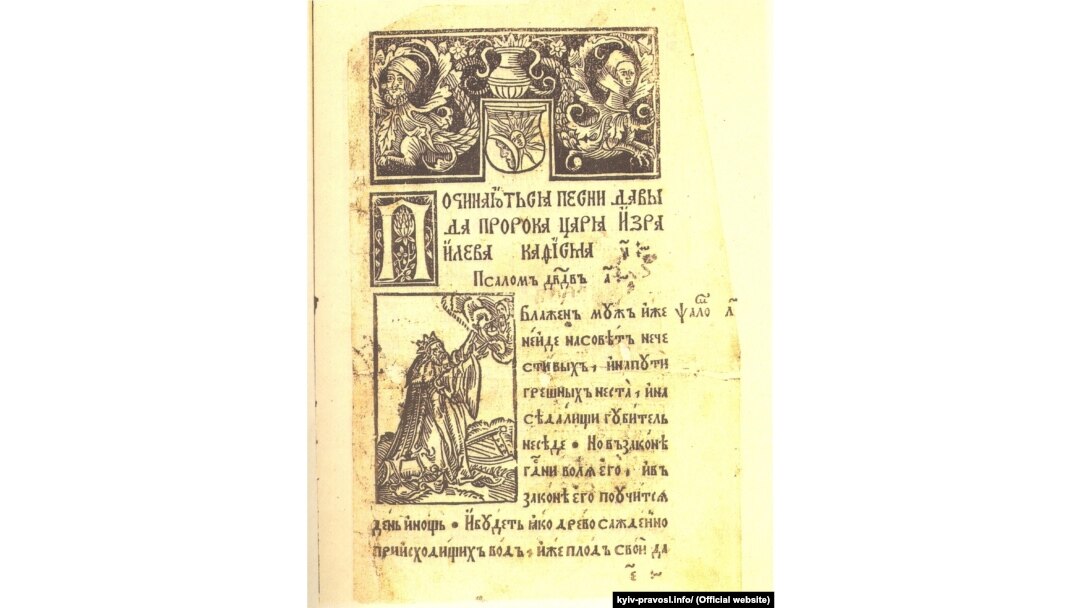 ПОЧИНАЮТЬСѦ ПЕСНИ ДАВЫ
ДА ПРОРОКА ЦАРѦ ИЗРА
ИЛЕВА КАФИСМА
Псаломъ дв҃двъ а҃
Блаженъ мужъ иже
Ѱало҃ а҃
нейде насоветъ нече
стивыхъ, инапути
грешныхъ неста, ина
сѣдалищи губитель
несѣде • Новъзаконѣ
гд҃ни волѧ его, ивъ
законѣ его поучитсѧ
день инощь • Ибудеть ꙗко древо сажденно
приисходищихъ водъ, иже плодъ свой да
kyiv-pravosl.info/ (Official website)